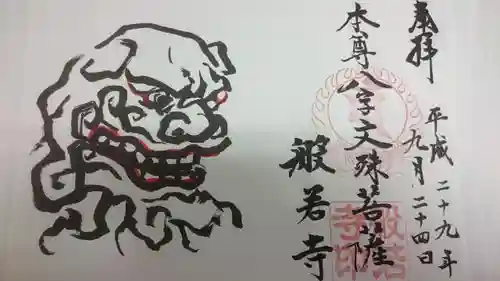 奉拝
平成二十九年
九月二十四日
本尊八字文殊菩薩
般若寺
般若
寺印